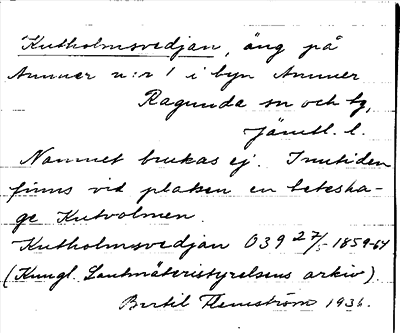 Kutholmsvedjan, äng på
Ammer n:r 1 i byn Ammer
Ragunda sn och tg,
Jämtl. l.
Namnet brukas ej. I nutiden
finns vid platsen en betesha-
ge Kutvolmen.
Kutholmsvedjan 039 27/5 1859-64
(Kungl. Lantmäteristyrelsens arkiv).
Bertil Flemström 1936.